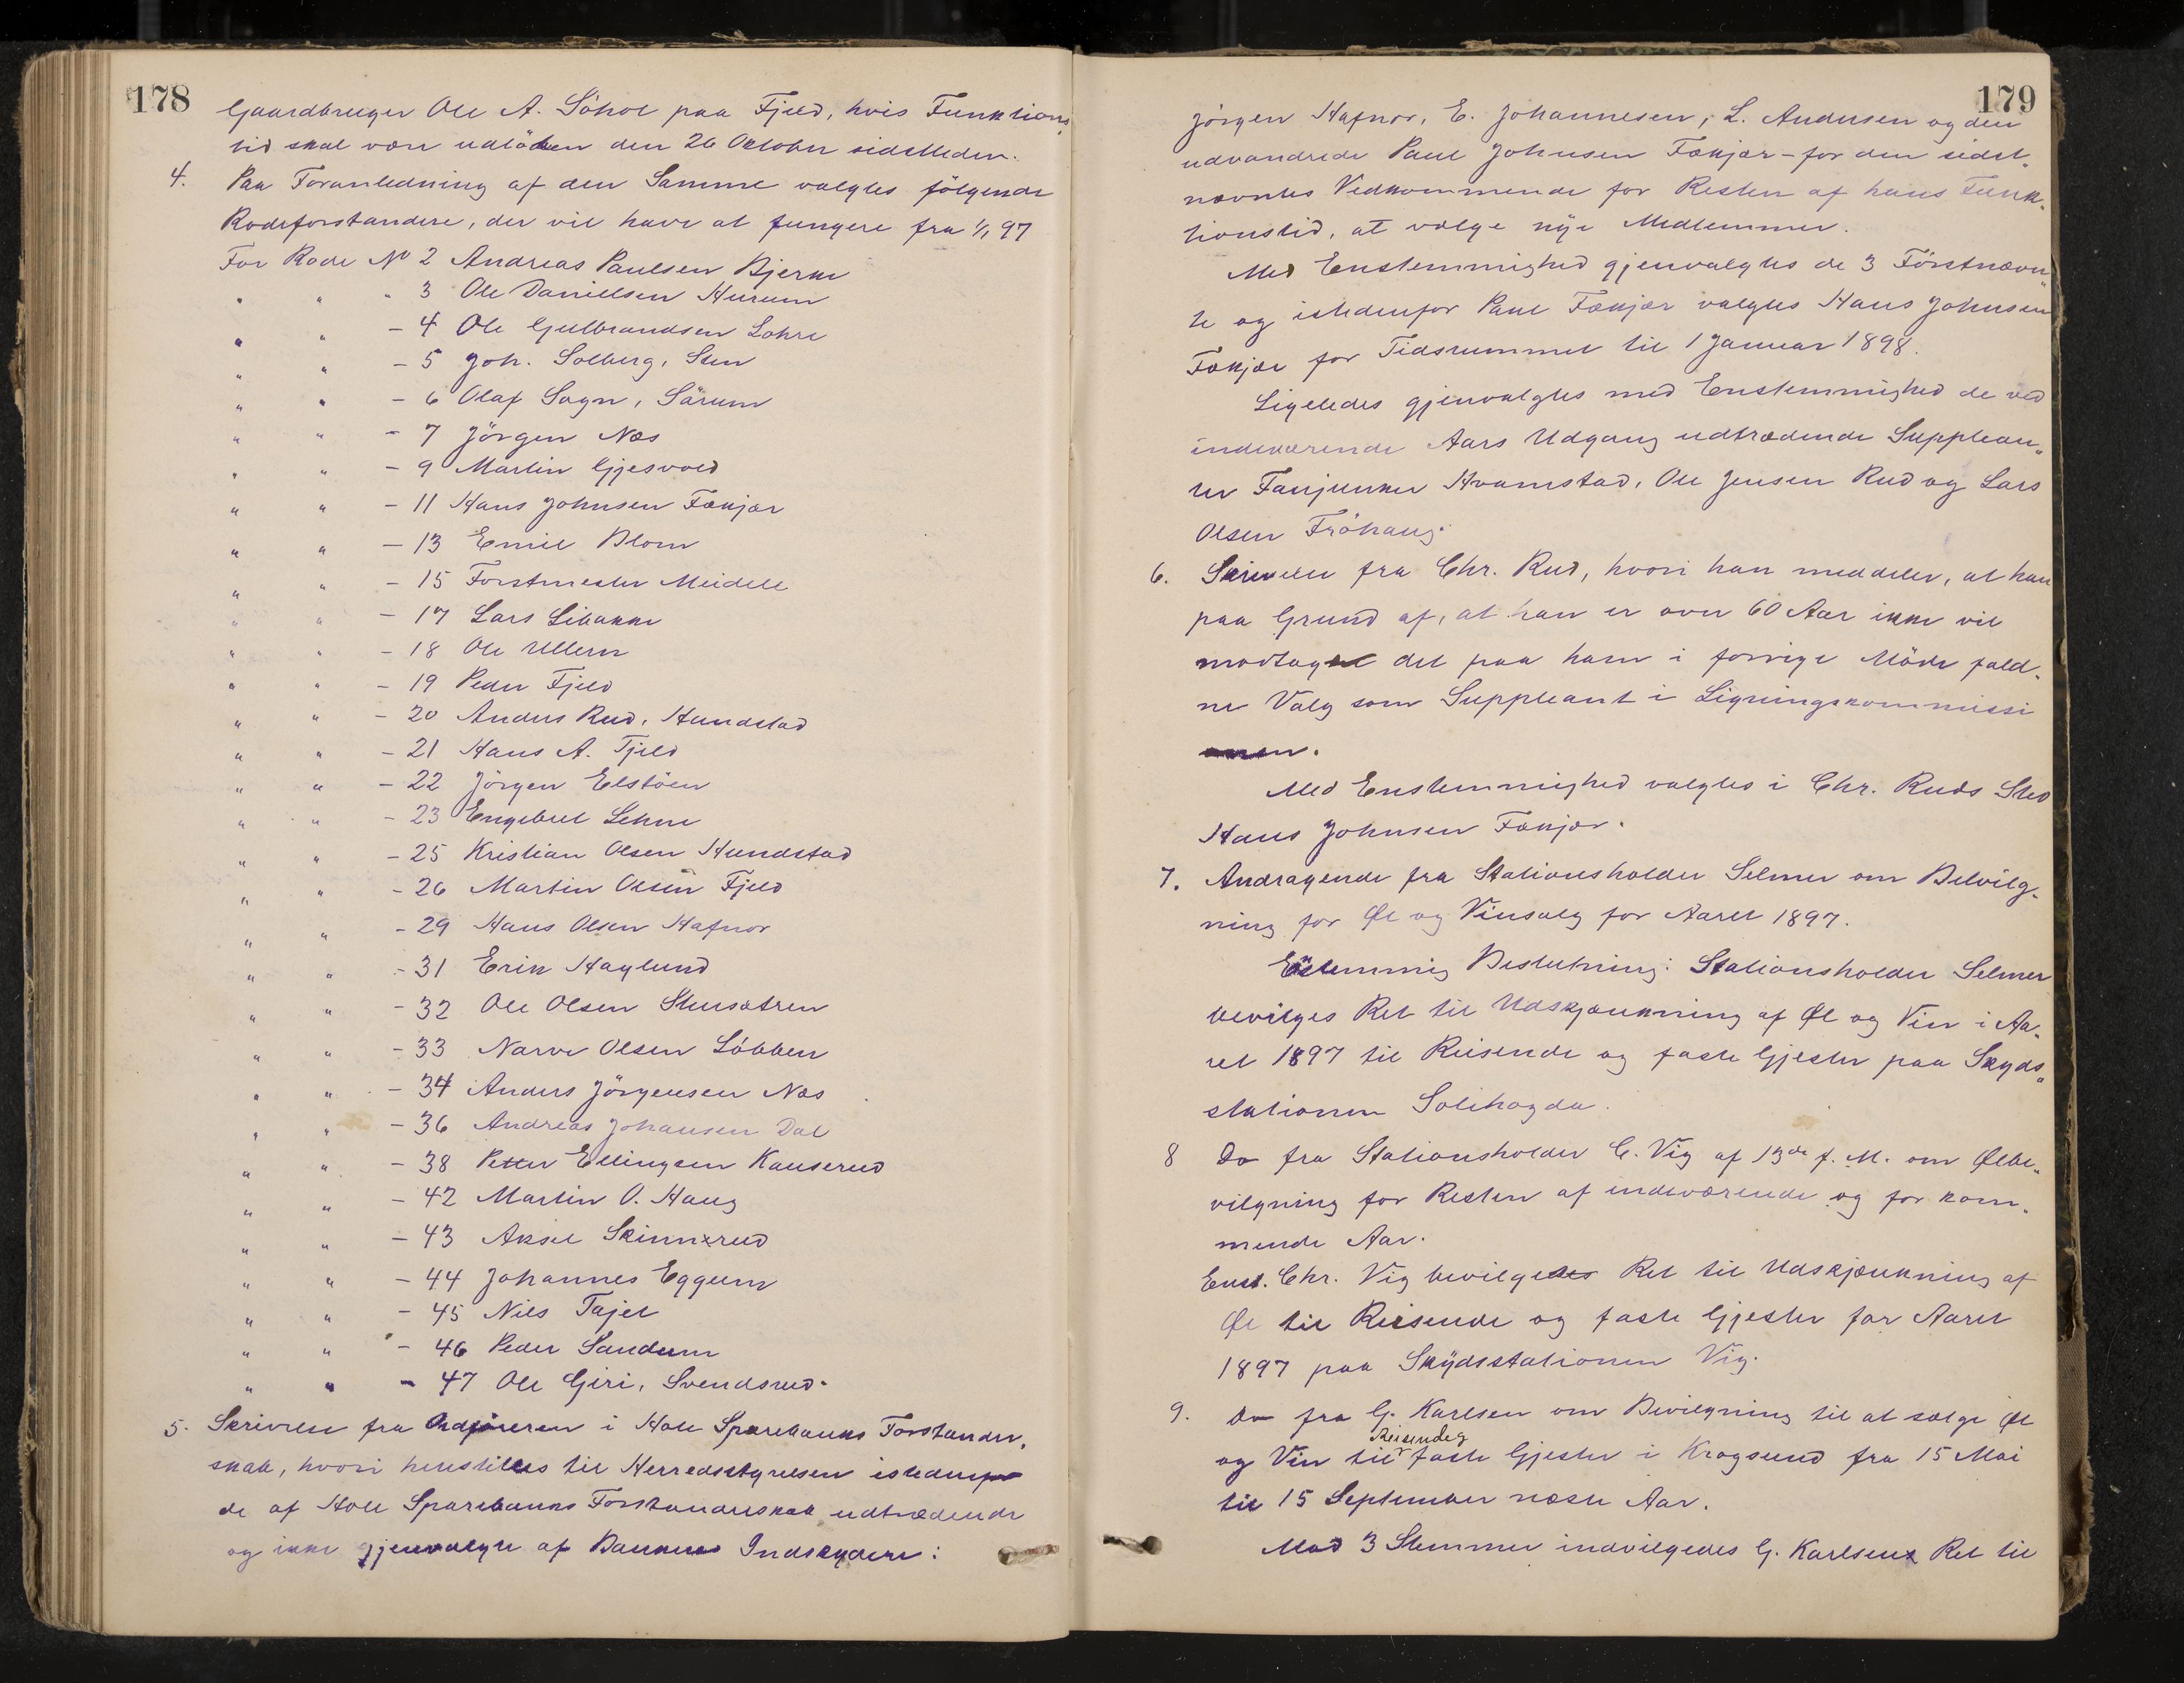 178
Gaardbruger Ole A. Söhol paa Fjeld, hvis Funktions
tid skal være udlöben den 26 Oktober sidstleden.
4. Paa Foranledning af den Samme valgtes fölgende
Rodeforstandere, der vil have at fungere fra 1/1 97
For Rode No 2 Andreas Paulsen Bjerke
" " " 3 Ole Daniellsen Hurum
" " - 4 Ole Gulbrandsen Lohre
" " - 5 Joh. Solberg, Sten
" " - 6 Olaf Sogn, Sörum
" " - 7 Jörgen Næs
" " - 9 Martin Gjesvold
" " - 11 Hans Johnsen Fækjær
" " - 13 Emil Blom
" " - 15 Forstmester Meidell
" " - 17 Lars Libakke
" " - 18 Ole Ullern
" " - 19 Peder Fjeld
" " - 20 Anders Rud, Hundstad
" " - 21 Hans A. Fjeld
" " - 22 Jörgen Elstöen
" " - 23 Engebret Lehne
" " - 25 Kristian Olsen Hundstad
" " - 26 Martin Olsen Fjeld
" " - 29 Hans Olsen Hafnor
" " - 31 Erik Haglund
" " - 32 Ole Olsen Stursætren
" " - 33 Narve Olsen Löbben
" " - 34 Anders Jörgensen Næs
" " - 36 Andreas Johansen Dal
" " - 38 Petter Ellingsen Kauserud
" " - 42 Martin O. Haug
" " - 43 Aksel Skinnerud
" " - 44 Johannes Eggum
" " - 45 Nils Tajet
" " - 46 Peder Sandum
" " - 47 Ole Giri, Svendsrud.
5. Skrivelse fra Ordföreren i Hole Sparebanks Forstander,
skab, hvori henstilles til Herredsstyrelsen istedenfor
de af Hole Sparebanks Forstanderskab udtrædende
og ikke gjenvalgte af Bankens Indskydere:
179
Jörgen Hafnor, E. Johannesen, L. Andersen og den
udvandrede Paul Johnsen Fækjær - for den sidst-
nævntes Vedkommende for Resten af hans Funk-
tionstid, at vælge nye Medlemmer.
Med Enstemmighed gjenvalgtes de 3 Förstnævn"
te og istedenfor Paul Fækjær valgtes Hans Johnsen
Fækjær for Tidsrummet til 1 Januar 1898.
Ligeledes gjenvalgtes med Enstemmighed de ved
indeværende Aars Udgang udtrædende Supplean"
ter Fanjunker Hvamstad, Ole Jensen Rud og Lars
Olsen Fröhaug.
6. Skrivelse fra Chr. Rud, hvori han meddeler, at han
paa Grund af, at han er over 60 Aar ikke vil
modtage det paa ham i forrige Möde fald-
ne Valg som Suppleant i Ligningskommissi
onen.
Med Enstemmighed valgtes i Chr. Ruds Sted
Hans Johnsen Fækjær.
7. Andragende fra Stationsholder Selmer om Bevilg-
ning for Øl og Vinsalg for Aaret 1897.
Enstemmig Beslutning: Stationsholder Selmer
bevilges Ret til Udskjænkning af Øl og Vin i Aa-
ret 1897 til Reisende og faste Gjester paa Skyds"
stationen Solihøgda.
8 Do fra Stationsholder C. Vig af 13de f. M. om Ølbe"
vilgning for Resten af indeværende og for kom-
mende Aar.
Enst. Chr. Vig bevilgedes Ret til Udskjænkning af
Øl til Reisende og faste Gjester for Aaret
1897 paa Skydsstationen Vig.
9. Do fra G. Karlsen om Bevilgning til at sælge Øl
Reisende og
og Vin til faste Gjester i Krogsund fra 15 Mai
til 15 September næste Aar.
Mod 3 Stemmer indvilgedes G. Karlsens Ret til